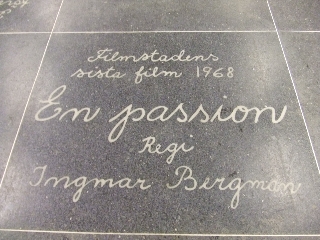 Filmstadens
sista film 1968
En passion
Regi
Ingmar Bergman